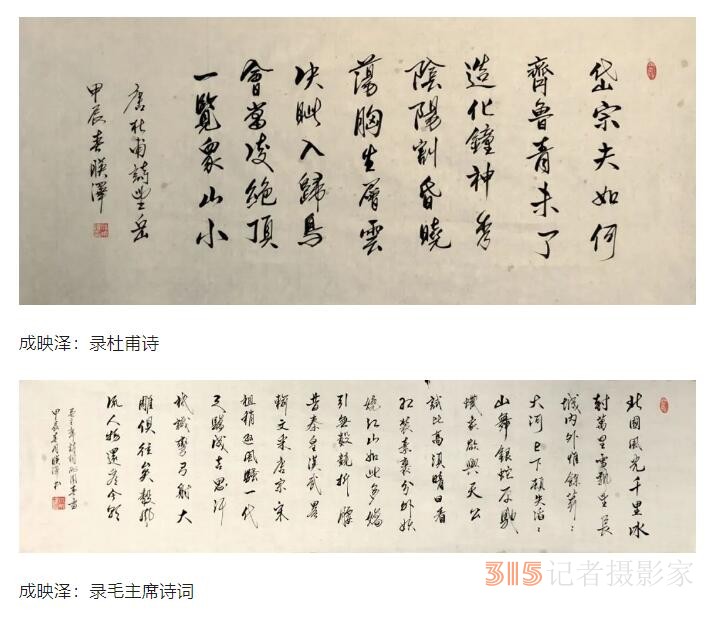 岱宗夫如何
齊魯青未了
造化鐘神秀
陰陽割昏曉
蕩胸生層雲
决眦入歸鳥
會當凌絕頂
一覽衆山小
唐杜甫詩望岳
甲辰春映澤
成映泽：录杜甫诗
北國風光千里冰
封萬里雪飄望長
城内外惟餘莽〻
大河上下頓失滔〻
山舞銀蛇原馳
蠟象欲與天公
試比高須晴日看
紅裝素裹分外妖
嬈江山如此多嬌
引無數競折腰
昔秦皇漢武畧
輸文采唐宗宋
祖稍遜風騷一代
天驕成吉思汗
祇識彎弓射大
雕俱往矣數風
流人物還看今朝
毛主席詩詞沁園春雪
315记者摄影家
成映泽：录毛主席诗词